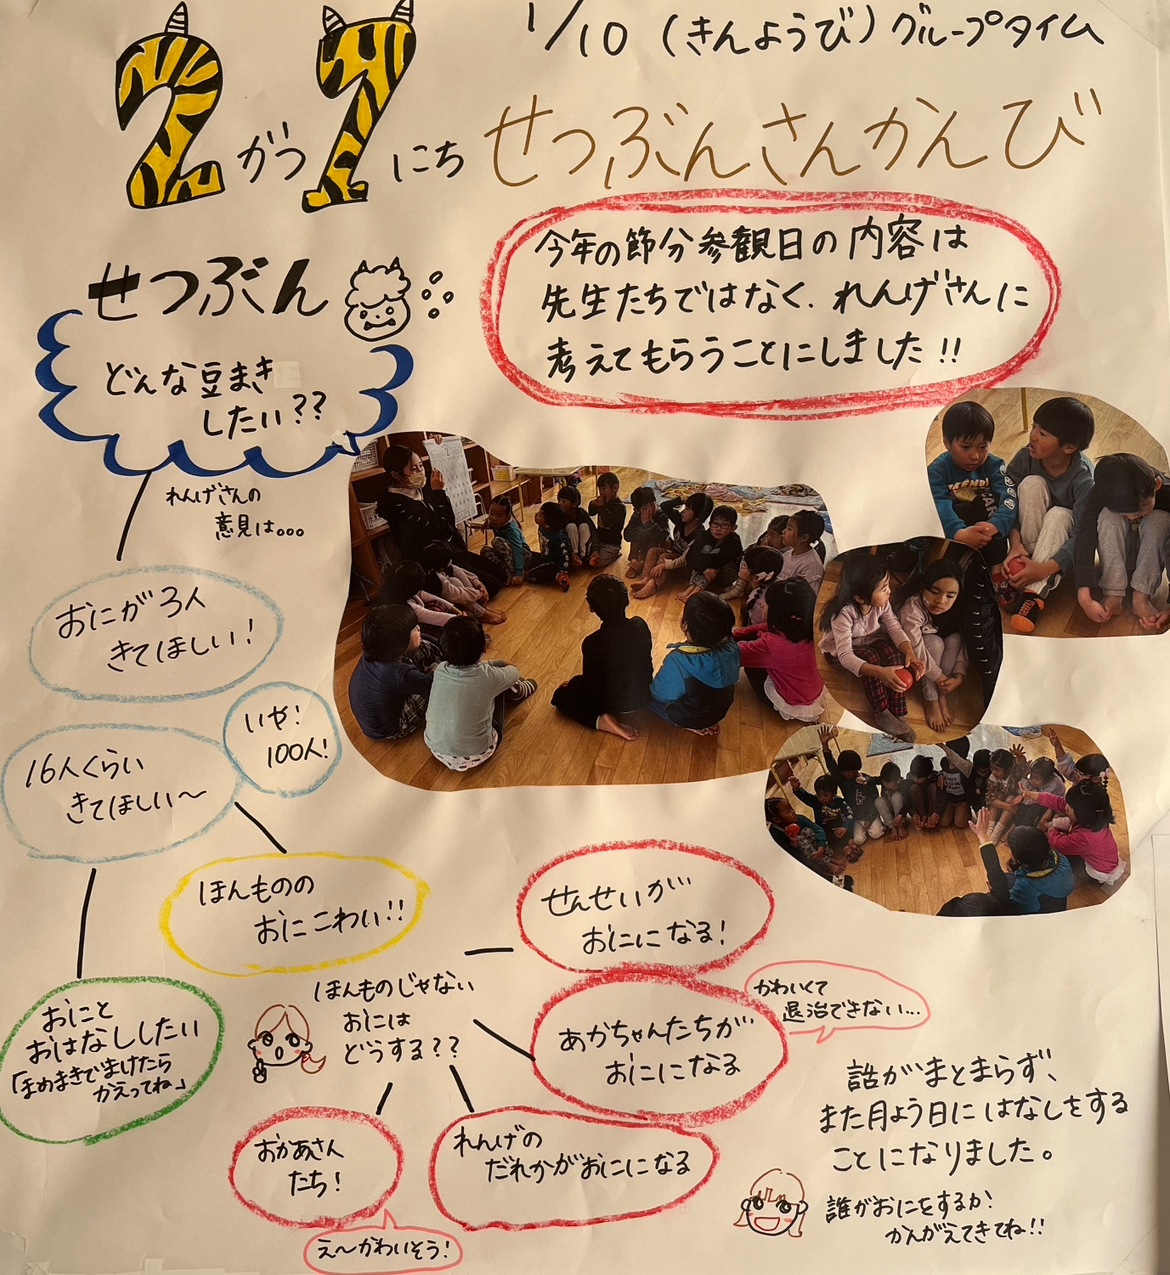 1/10（きんようび）グループタイム
2がつ1にち せつぶんさんかんび
今年の節分参観日の内容は
先生たちではなく、れんげさんに
考えてもらうことにしました!!
せつぶん
どんな豆まき
したい??
れんげさんの
意見は...
おにが3人
きてほしい!
いや!
100人!
16人くらい
きてほしい〜
ほんものの
おにこわい!!
おにと
おはなししたい
「まめまきでまけたら
かえってね」
ほんものじゃない
おには
どうする??
せんせいが
おにになる!
あかちゃんたちが
おにになる
かわいくて
退治できない...
おかあさん
たち!
え〜かわいそう!
れんげの
だれかがおにになる
話がまとまらず、
また月よう日にはなしをする
ことになりました。
誰がおにをするか!
かんがえてきてね!!